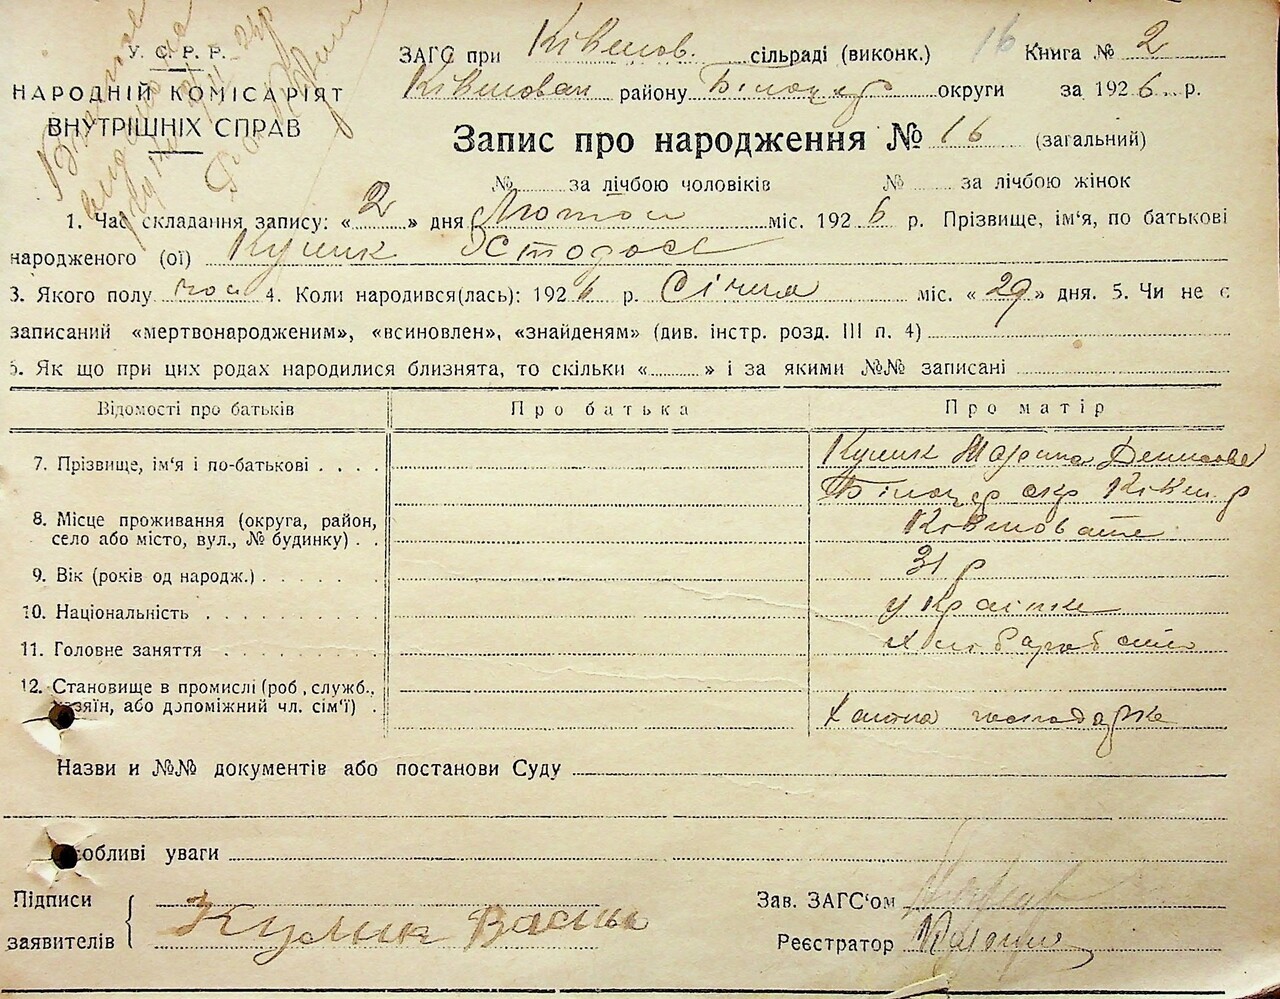 У. С. Р. Р.
НАРОДНІЙ КОМІСАРІЯТ
ВНУТРІШНІХ СПРАВ
ЗАГС при Ківшов. сільраді (виконк.) 16 Книга № 2
Ківшован району Білоцер округи за 1926 р.
Запис про народження № 16 (загальний)
№ за лічбою чоловіків № за лічбою жінок
1. Час складання запису: « 2 » дня Лютого міс. 1926 р. Прізвище, ім'я, по батькові
народженого (ої) Кулик
3. Якого полу чол 4. Коли народився(лась): 1926 р. Січня міс. « 29 » дня. 5. Чи не є
записаний «мертвонародженим», «всиновлен», «знайденям» (див. інстр. розд. III п. 4)
6. Як що при цих родах народилися близнята, то скільки « » і за якими №№ записані
Відомості про батьків Про батька Про матір
7. Прізвище, ім'я і по-батькові . . . . Кулик Марина Денисова
Білоцер окр Ківш р
8. Місце проживання (округа, район,
село або місто, вул., № будинку) . . Ківшовате
9. Вік (років од народж.) . . . . . . 31 р
10. Національність . . . . . . . . . українка
11. Головне заняття . . . . . . . .
12. Становище в промислі (роб., служб.,
хазяїн, або допоміжний чл. сім'ї) . господарка
Назви и №№ документів або постанови Суду
Особливі уваги
Підписи
заявителів Кулик Василь
Зав. ЗАГС'ом
Реєстратор